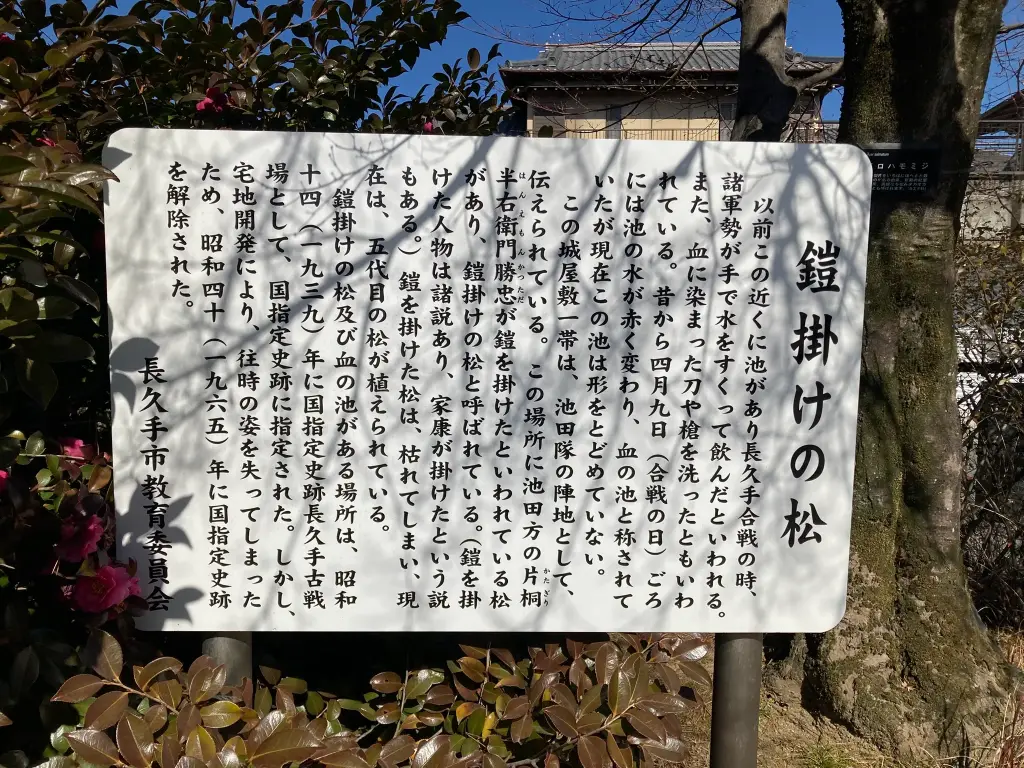 鎧掛けの松
以前この近くに池があり長久手合戦の時、
諸軍勢が手で水をすくって飲んだといわれる。
また、血に染まった刀や槍を洗ったともいわ
れている。昔から四月九日（合戦の日）ごろ
には池の水が赤く変わり、血の池と称されて
いたが現在この池は形をとどめていない。
この城屋敷一帯は、池田隊の陣地として、
伝えられている。この場所に池田方の片桐
かたぎり
半右衛門勝忠が鎧を掛けたといわれている松
はんえもんかつただ
があり、鎧掛けの松と呼ばれている。（鎧を掛
けた人物は諸説あり、家康が掛けたという説
もある。）鎧を掛けた松は、枯れてしまい、現
在は、五代目の松が植えられている。
鎧掛けの松及び血の池がある場所は、昭和
十四（一九三九）年に国指定史跡長久手古戦
場として、国指定史跡に指定された。しかし、
宅地開発により、往時の姿を失ってしまった
ため、昭和四十（一九六五）年に国指定史跡
を解除された。
長久手市教育委員会
ロハモミジ